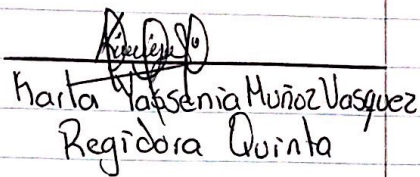 Karla Yapsenia Muñoz Vasquez
Regidora Quinta